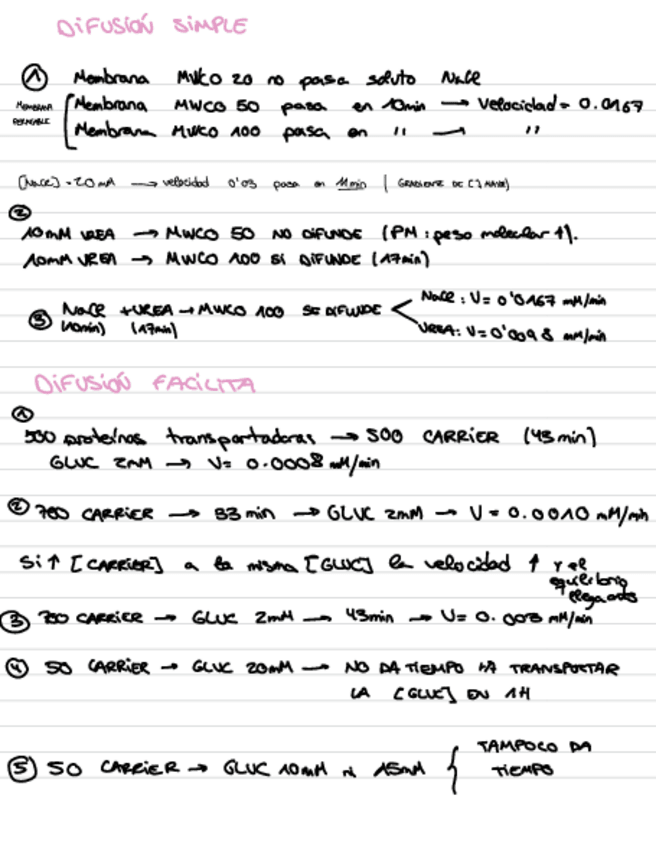 DIFUSIÓN SIMPLE
① Membrana MWCO 20 no pasa soluto NaCl
MEMBRANA PERMEABLE
Membrana MWCO 50 pasa en 10min → Velocidad = 0.0167
Membrana MWCO 100 pasa en " → "
[NaCl] = 20 mM → velocidad 0'03 pasa en 11min | GRADIENTE DE [] MAYOR)
②
10mM UREA → MWCO 50 NO DIFUNDE (PM: peso molecular ↑).
10mM UREA → MWCO 100 SI DIFUNDE (17min)
③ NaCl + UREA → MWCO 100 SE DIFUNDE < NaCl: V= 0'0167 mM/min
(10min) (17min) UREA: V=0'0098 mM/min
DIFUSIÓN FACILITA
①
500 proteínas transportadoras → 500 CARRIER (43min)
GLUC 2mM → V= 0.0008 mM/min
② 700 CARRIER → 33 min → GLUC 2mM → V = 0.0010 mM/min
Si ↑ [CARRIER] a la misma [GLUC] la velocidad ↑ y el
equilibrio
llega antes
③ 700 CARRIER → GLUC 2mM → 43min → V= 0.003 mM/min
④ 50 CARRIER → GLUC 20mM → NO DA TIEMPO HA TRANSPORTAR
LA [GLUC] EN 1H
⑤ 50 CARRIER → GLUC 10mM 15mM { TAMPOCO DA
TIEMPO